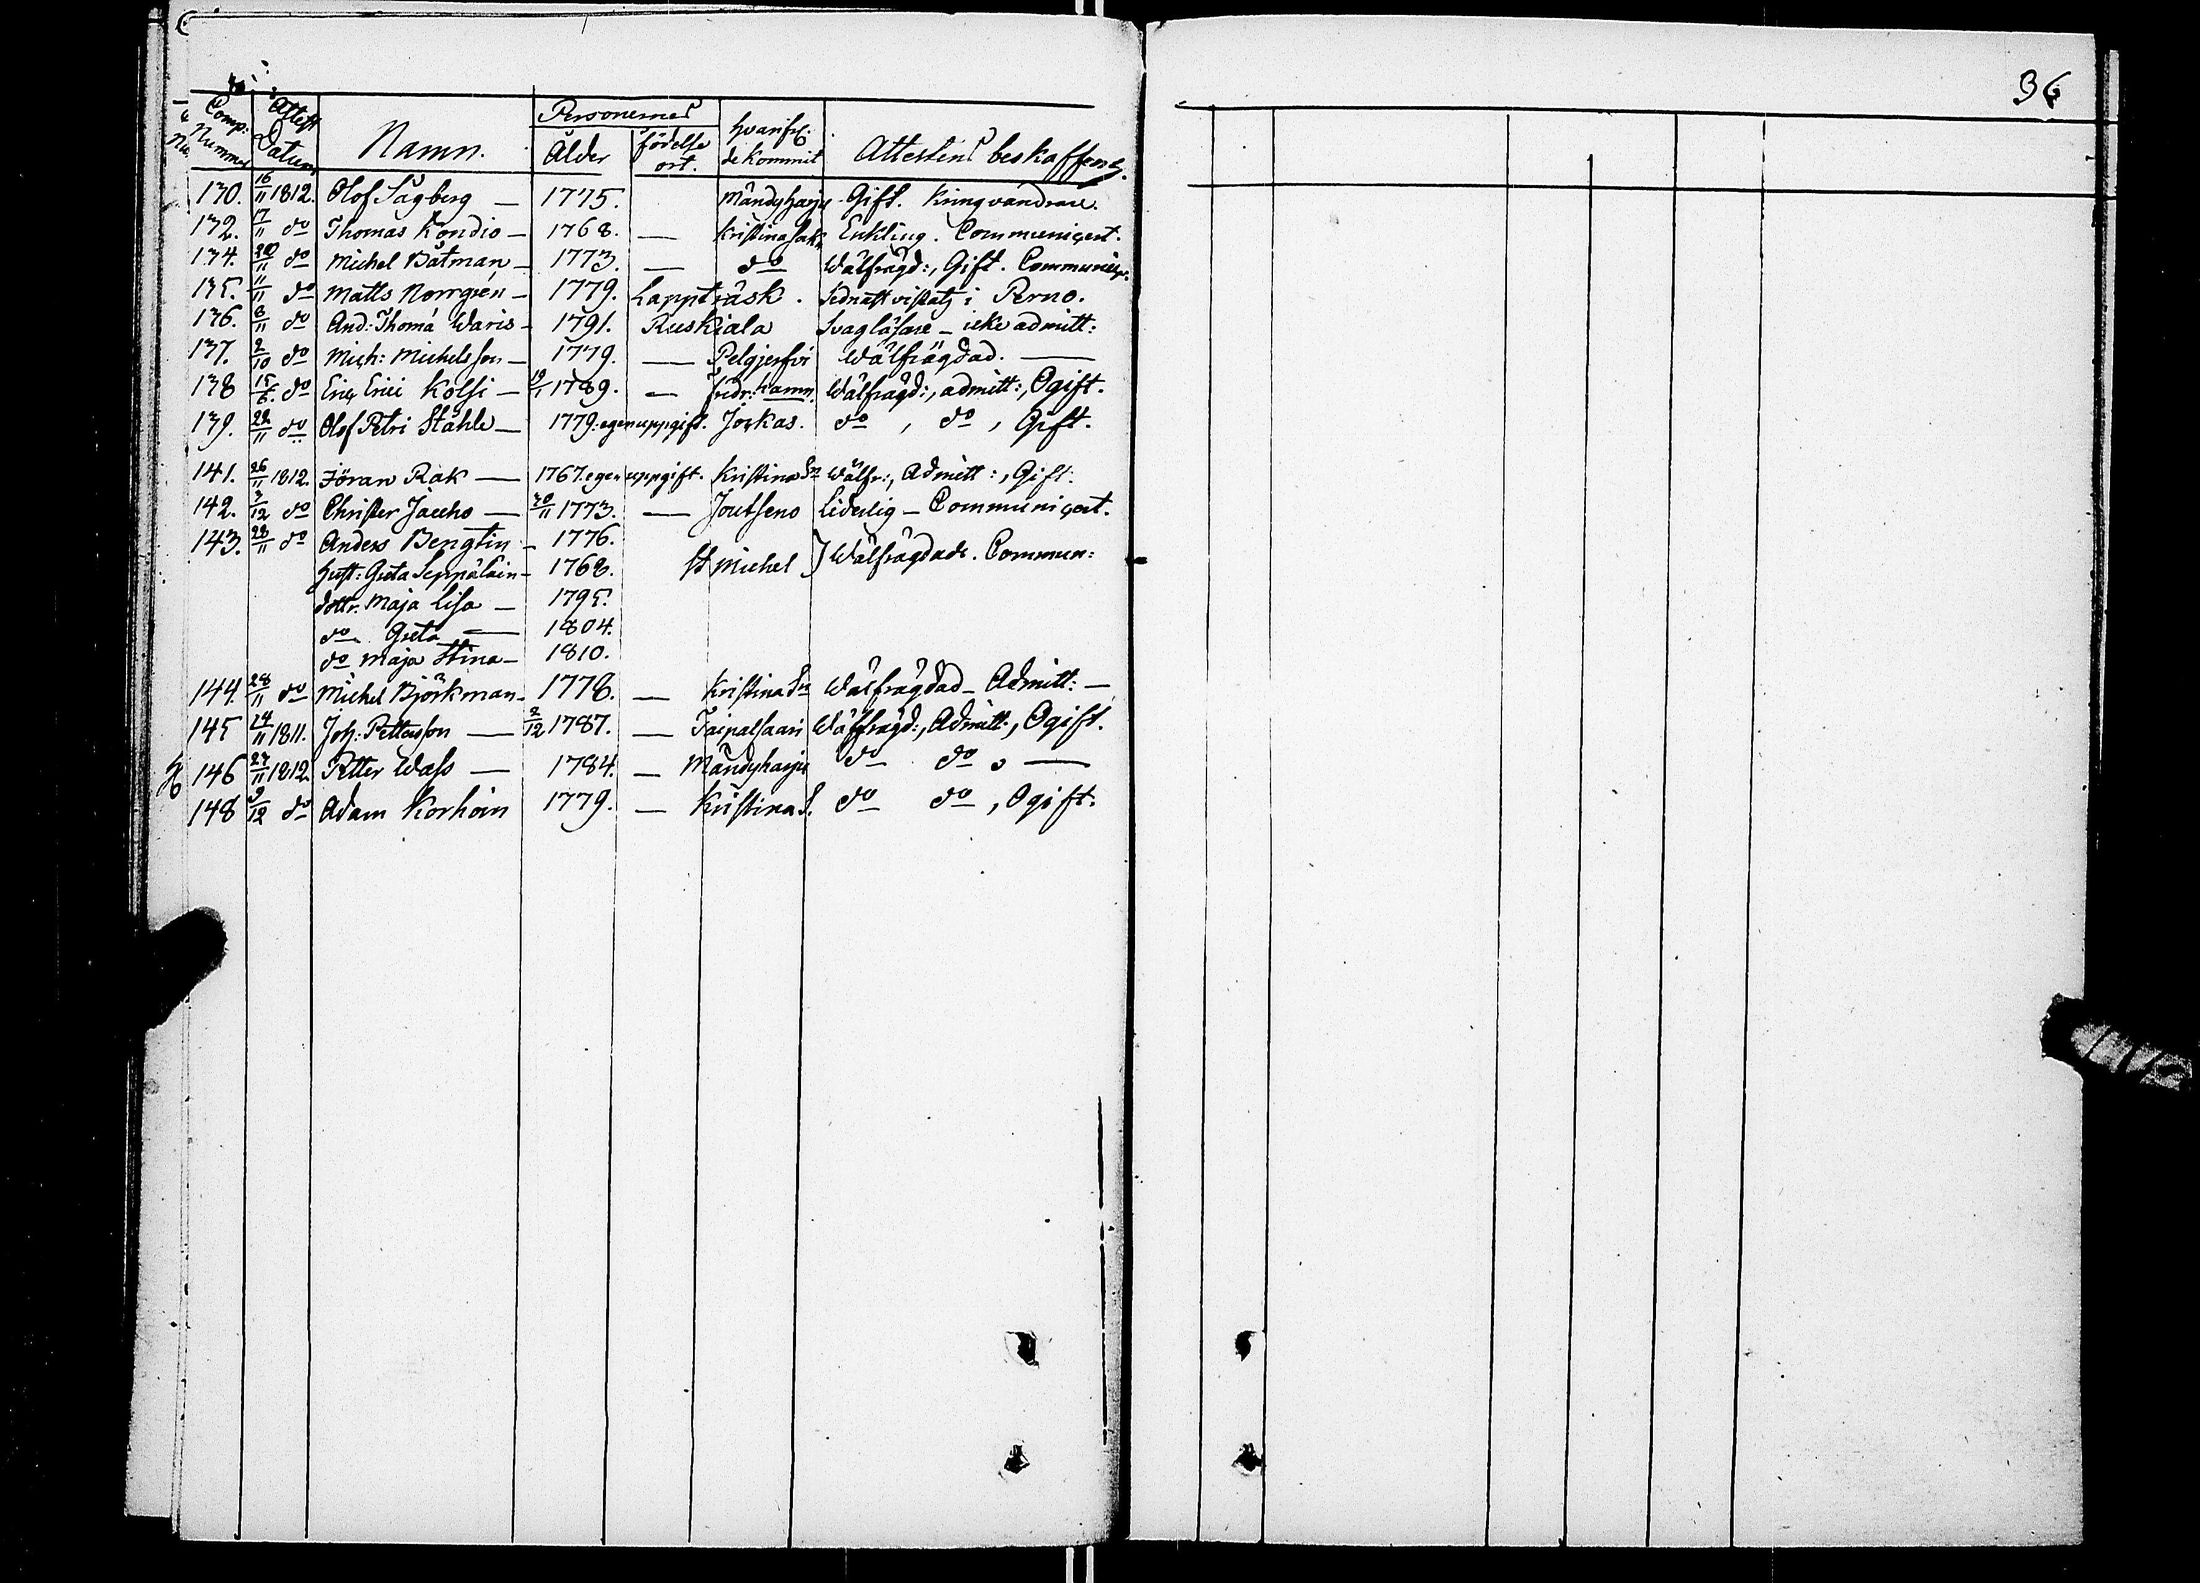 36
Comp: Nummer Attest Datum Namn. Personernes Ålder födelse ort. hvarifr: de kommit Attestens beskaffenh.
130. 16/11 1812. Olof Sågberg — 1775. Mändyharju Gift. Kringvandrare.
132. 17/11 do Thomas Kondio — 1768. — Kristina Enkling. Communicert.
134. 20/11 do Michel Båtman — 1773. — do Wälfrägd:, Gift. Communicer:
135. 11/11 do Matts Norrgrén — 1779. Lappträsk. sednast vistatz i Perno.
136. 8/11 do And: Thomá Waris — 1791. Ruskiala Svagläsare — icke admitt:
137. 2/10 do Mich: Michelsson — 1779. — Pelgjerfvi Wälfrägdad. —
138 15/5. do Eric Erici Kolsi — 19/1 1789. — fredr: hamn. Wälfrägd:, admitt:, Ogift.
139. 22/11 do Olof Petri Ståhle — 1779. egen uppgift. Jorkas. do, do, Gift.
141. 26/11 1812. Jöran Rak — 1767. egen uppgift. Kristina Wälfr:, Admitt:, Gift.
142. 3/12 do Christer Jaccho — 30/11 1773. — Joutseno Liderlig — Communicert.
143. 28/11 do Anders Bengtin — 1776.
hust: Greta Seppäläin — 1768. St Michel } Wälfrägdade. Commun:
dottr. Maja Lisa — 1795.
do Greta — 1804.
do Maja Stina — 1810.
144. 28/11 do Michel Björkman — 1778. — Kristina Wälfrägdad — Admitt: —
145 24/11 1811. Joh: Pettersson — 2/12 1787. — Taipalsaari Wälfrägd:, Admitt:, Ogift.
146 27/11 1812. Petter Wass — 1784. — Mändyharju do do —
148 9/12 do Adam Korhoin 1779. — Kristina S. do do, Ogift.